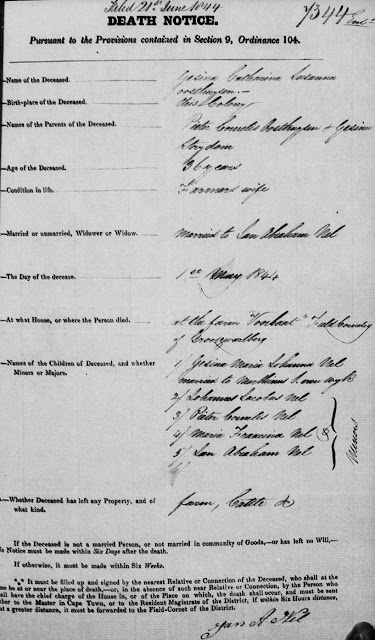 Filed 21st June 1844
7344
DEATH NOTICE.
Pursuant to the Provisions contained in Section 9, Ordinance 104.
—Name of the Deceased. Gesina Catharina Susanna
Oosthuysen.—
—Birth-place of the Deceased. this Colony
—Names of the Parents of the Deceased. Pieter Cornelis Oosthuysen & Gesina
Strydom
—Age of the Deceased. 36 years
—Condition in life. Farmers wife
—Married or unmarried, Widower or Widow. married to Jan Abraham Nel
—The Day of the decease. 1st May 1844
—At what House, or where the Person died. at the farm Fieldcornetcy
of
—Names of the Children of Deceased, and whether
Minors or Majors.
1/ Gesina Maria Johanna Nel
married to
2/ Johannes Jacobus Nel
3/ Pieter Cornelis Nel
4/ Maria Francina Nel
5/ Jan Abraham Nel
Minors
—Whether Deceased has left any Property, and of
what kind. farm, Cattle &
If the Deceased is not a married Person, or not married in community of Goods,—or has left no Will,—
is Notice must be made within Six Days after the death.
If otherwise, it must be made within Six Weeks.
*** It must be filled up and signed by the nearest Relative or Connection of the Deceased, who shall at the
me be at or near the place of death,—or, in the absence of such near Relative or Connection, by the Person who
all have the chief charge of the House in, or of the Place on which, the death shall occur, and must be sent
ther to the Master in Cape Town, or to the Resident Magistrate of the District, if within Six Hours distance,
at a greater distance, it must be forwarded to the Field-Cornet of the District.
Jan A Nel